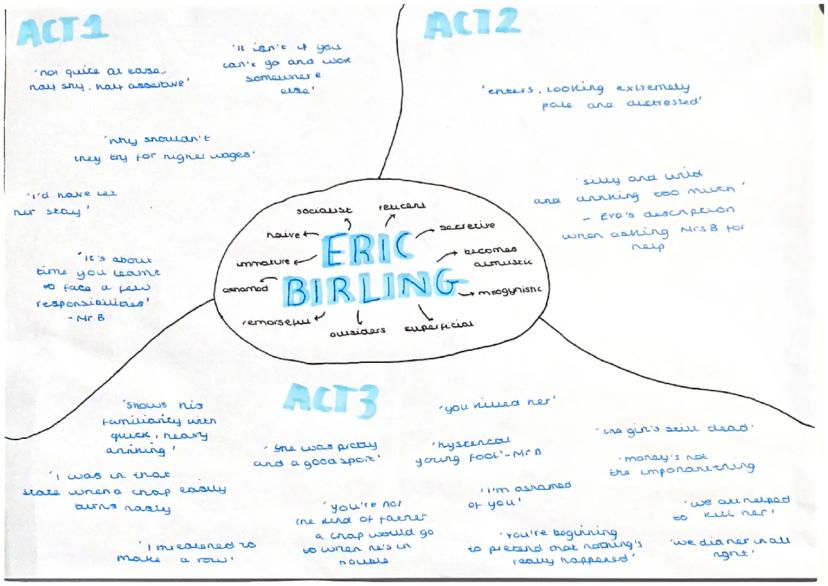 ACT1
'not quite at ease,
half shy, half assertive'
'It isn't if you
can't go and work
somewhere
else'
'why shouldn't
they try for higher wages'
'I'd have let
her stay'
'It's about
time you learnt
to face a few
responsibilities'
- Mr B
ACT2
'enters, looking extremely
pale and distressed'
'silly and wild
and drinking too much'
- Eva's description
when asking Mrs B for
help
ERIC
BIRLING
socialist
reticent
naive
secretive
immature
becomes
altruistic
ashamed
misogynistic
remorseful
outsiders
superficial
ACT3
'shows his
familiarity with
quick, heavy
drinking'
'I was in that
state when a chap easily
turns nasty
'I threatened to
make a row'
'she was pretty
and a good sport'
'you're not
the kind of father
a chap would go
to when he's in
trouble
'you killed her'
'hysterical
young fool' - Mr B
'I'm ashamed
of you'
'You're beginning
to pretend that nothing's
really happened'
'the girl's still dead'
'money's not
the important thing
'we all helped
to kill her'
'we did her in all
right'